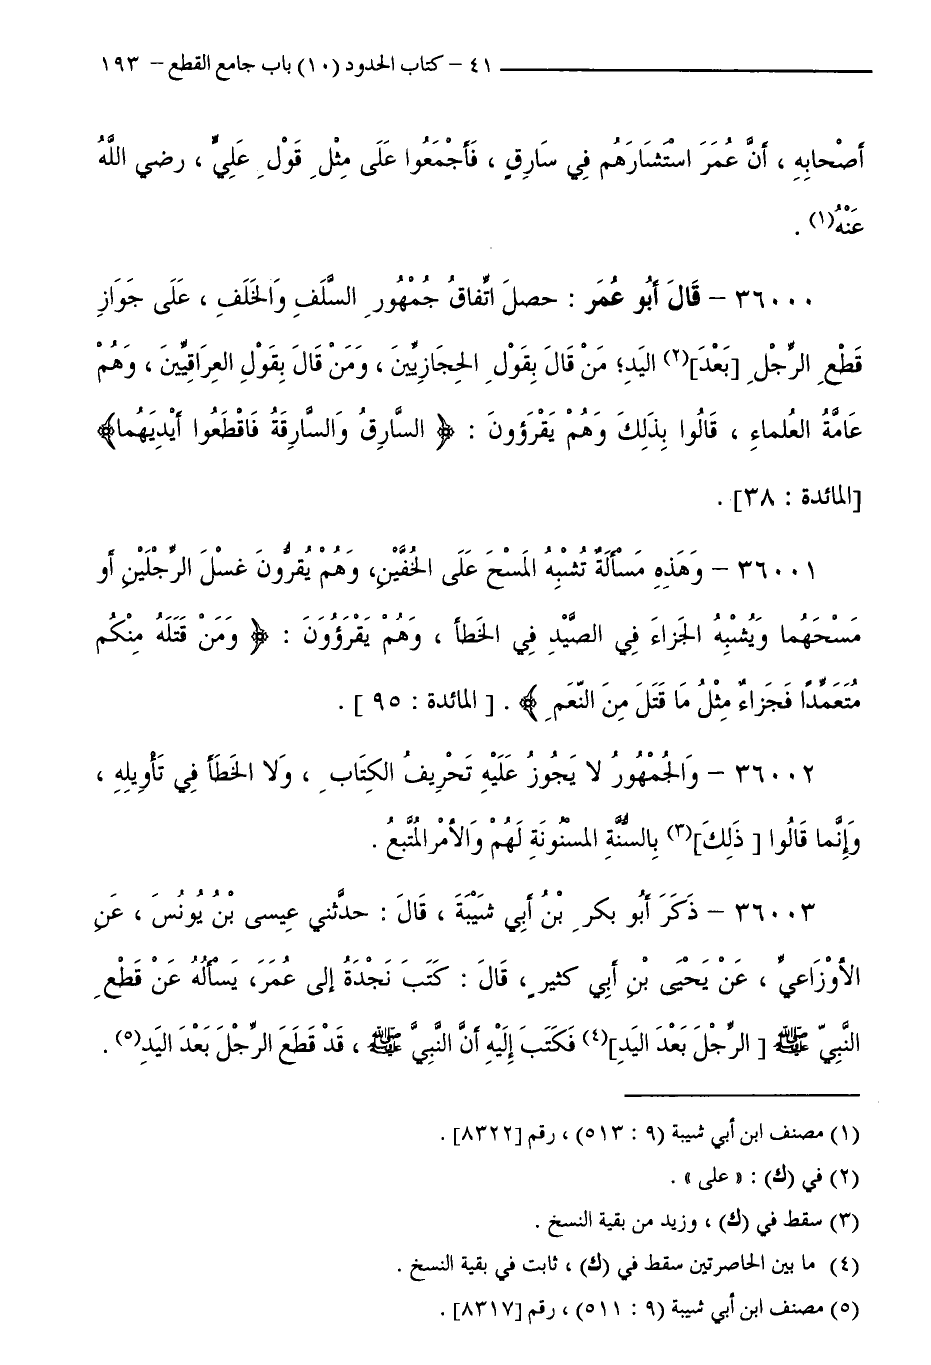 ٤١ - كتاب الحدود (١٠) باب جامع القطع - ١٩٣
أصْحابِهِ ، أنَّ عُمَرَ اسْتَشَارَهُم فِي سَارِقٍ ، فَأجْمَعُوا عَلَى مِثْلِ قَوْلِ عَلِيٍّ ، رضي اللَّهُ
عَنْهُ(١) .
٣٦٠٠٠ - قَالَ أبُو عُمَر : حصلَ اتِّفاقُ جُمْهُورِ السَّلَفِ وَالخَلَفِ ، عَلَى جَوَازِ
قَطْعِ الرِّجْلِ [بَعْدَ](٢) اليَدِ؛ مَنْ قَالَ بِقَوْلِ الحِجَازِيِّينَ ، وَمَنْ قَالَ بِقَوْلِ العِرَاقِيِّينَ ، وَهُمْ
عَامَّةُ العُلماءِ ، قَالُوا بِذَلِكَ وَهُمْ يَقْرَؤونَ : ﴿ السَّارِقُ وَالسَّارِقَةُ فَاقْطَعُوا أيْدِيَهُما﴾
[المائدة : ٣٨] .
٣٦٠٠١ - وَهَذِهِ مَسْألَةٌ تُشْبِهُ المَسْحَ عَلَى الخُفَّيْنِ، وَهُمْ يُقرُّونَ غسْلَ الرِّجلَيْنِ أو
مَسْحَهُما ويُشْبِهُ الجَزاءَ فِي الصَّيْدِ فِي الخَطأ ، وَهُمْ يَقْرَؤُونَ : ﴿ وَمَنْ قَتَلَهُ مِنْكُم
مُتَعَمِّدًا فَجَزاءٌ مِثْلُ مَا قَتَلَ مِنَ النَّعَمِ ﴾ . [ المائدة : ٩٥ ] .
٣٦٠٠٢ - وَالجُمْهُورُ لا يَجُوزُ عَلَيْهِ تَحْرِيفُ الكِتَابِ ، وَلا الخَطَأ فِي تَأْوِيلِهِ ،
وَإِنَّما قَالُوا [ ذَلِكَ](٣) بِالسُّنَّةِ المسْنُونَةِ لَهُمْ وَالأمْرِ المُتَّبعُ .
٣٦٠٠٣ - ذَكَرَ أبُو بكرِ بْنُ أبِي شَيْبَةَ ، قَالَ : حدَّثني عِيسى بْنُ يُونُسَ ، عَنِ
الأوْزَاعيِّ ، عَنْ يَحْيَى بْنِ أبِي كثيرٍ، قَالَ : كَتَبَ نَجْدَةُ إلى عُمَرَ، يَسألُهُ عَنْ قَطْعِ
النَّبِيِّ ﷺ [ الرِّجْلَ بَعْدَ اليَدِ](٤) فَكَتَبَ إِلَيْهِ أنَّ النَّبِيَّ ﷺ ، قَدْ قَطَعَ الرِّجْلَ بَعْدَ اليَدِ(٥) .
(١) مصنف ابن أبي شيبة (٩ : ٥١٣) ، رقم [٨٣٢٢] .
(٢) في (ك) : « على » .
(٣) سقط في (ك) ، وزيد من بقية النسخ .
(٤) ما بين الحاصرتين سقط في (ك) ، ثابت في بقية النسخ .
(٥) مصنف ابن أبي شيبة (٩ : ٥١١) ، رقم [٨٣١٧] .